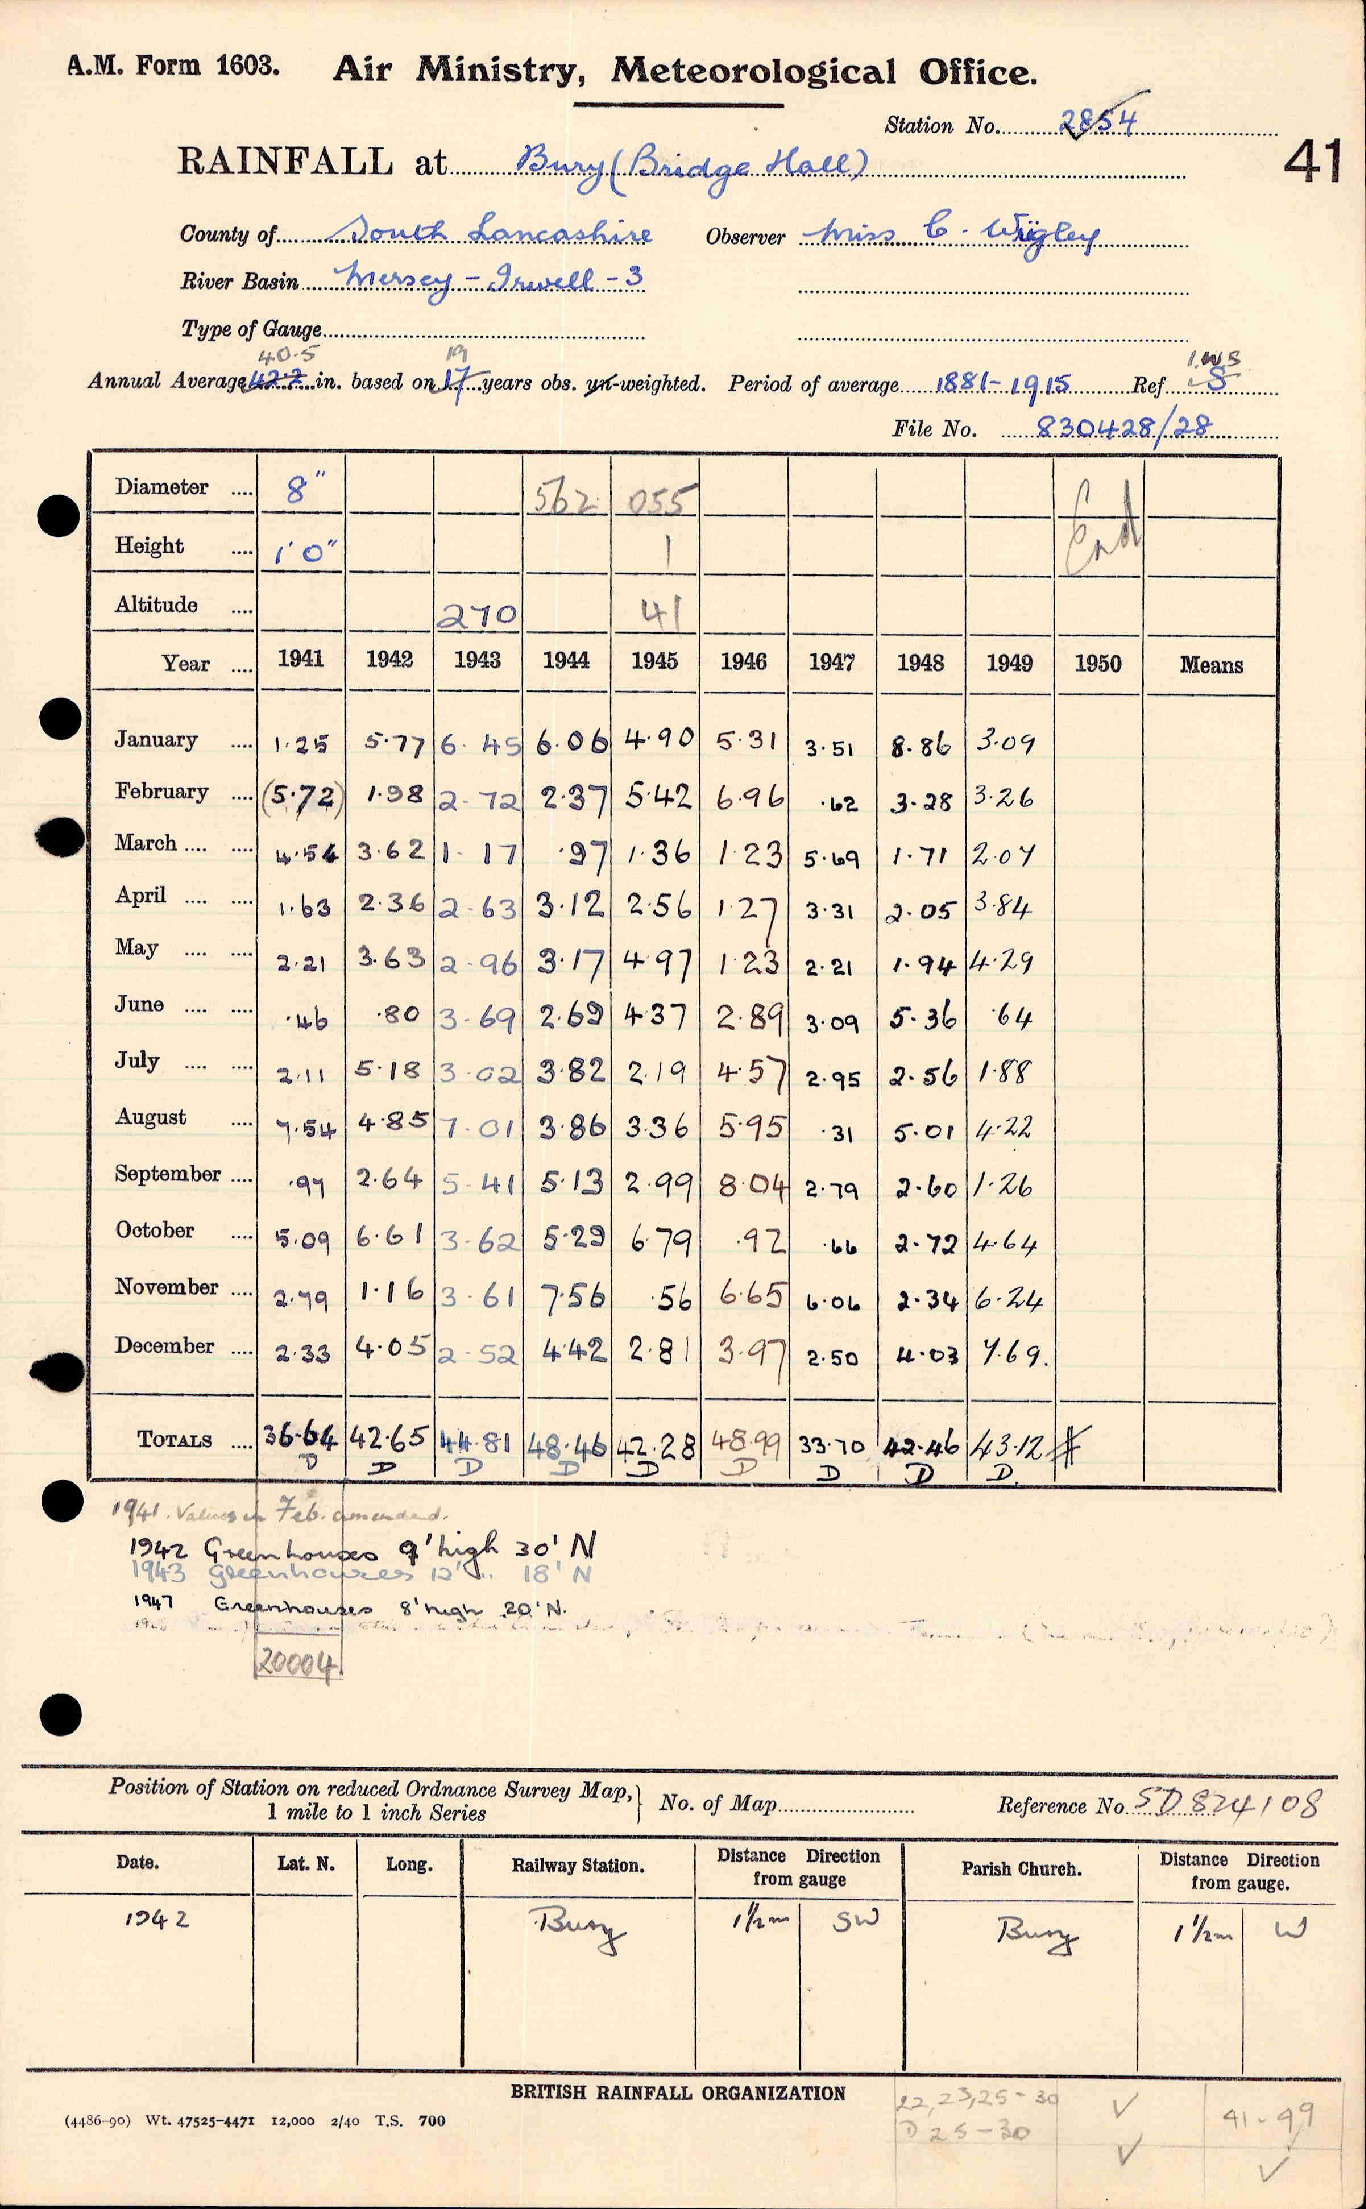 A.M. Form 1603. Air Ministry, Meteorological Office.
Station No. 2854
41
RAINFALL at Bury (Bridge Hall)
County of South Lancashire Observer Miss C. Wigley
River Basin Mersey - Irwell - 3
Type of Gauge
40.5 19 I.W.S
Annual Average 42.2 in. based on 17 years obs. un-weighted. Period of average 1881-1915 Ref. S
File No. 830428/28
Diameter .... 8" 562 055 End
Height .... 1'0" 1
Altitude .... 270 41
Year .... 1941 1942 1943 1944 1945 1946 1947 1948 1949 1950 Means
January .... 1.25 5.77 6.45 6.06 4.90 5.31 3.51 8.86 3.09
February .... (5.72) 1.98 2.72 2.37 5.42 6.96 .62 3.28 3.26
March .... .... 4.54 3.62 1.17 .97 1.36 1.23 5.69 1.71 2.07
April .... .... 1.63 2.36 2.63 3.12 2.56 1.27 3.31 2.05 3.84
May .... .... 2.21 3.63 2.96 3.17 4.97 1.23 2.21 1.94 4.29
June .... .... .46 .80 3.69 2.69 4.37 2.89 3.09 5.36 .64
July .... .... 2.11 5.18 3.02 3.82 2.19 4.57 2.95 2.56 1.88
August .... 7.54 4.85 7.01 3.86 3.36 5.95 .31 5.01 4.22
September .... .97 2.64 5.41 5.13 2.99 8.04 2.79 2.60 1.26
October .... 5.09 6.61 3.62 5.29 6.79 .92 .66 2.72 4.64
November .... 2.79 1.16 3.61 7.56 .56 6.65 6.06 2.34 6.24
December .... 2.33 4.05 2.52 4.42 2.81 3.97 2.50 4.03 7.69.
TOTALS .... 36.64 42.65 44.81 48.46 42.28 48.99 33.70 42.46 43.12
D D D D D D D D D
1941. Values in Feb. amended.
1942 Greenhouses 9' high 30' N
1943 Greenhouses 12' " 18' N
1947 Greenhouses 8' high 20' N.
20004
Position of Station on reduced Ordnance Survey Map, 1 mile to 1 inch Series } No. of Map Reference No. SD 824108
Date. Lat. N. Long. Railway Station. Distance Direction from gauge Parish Church. Distance Direction from gauge.
1942 Bury 1½m SW Bury 1½m W
BRITISH RAINFALL ORGANIZATION
22, 23, 25-30
D 25-30
41-49
(4486-90) Wt. 47525-4471 12,000 2/40 T.S. 700